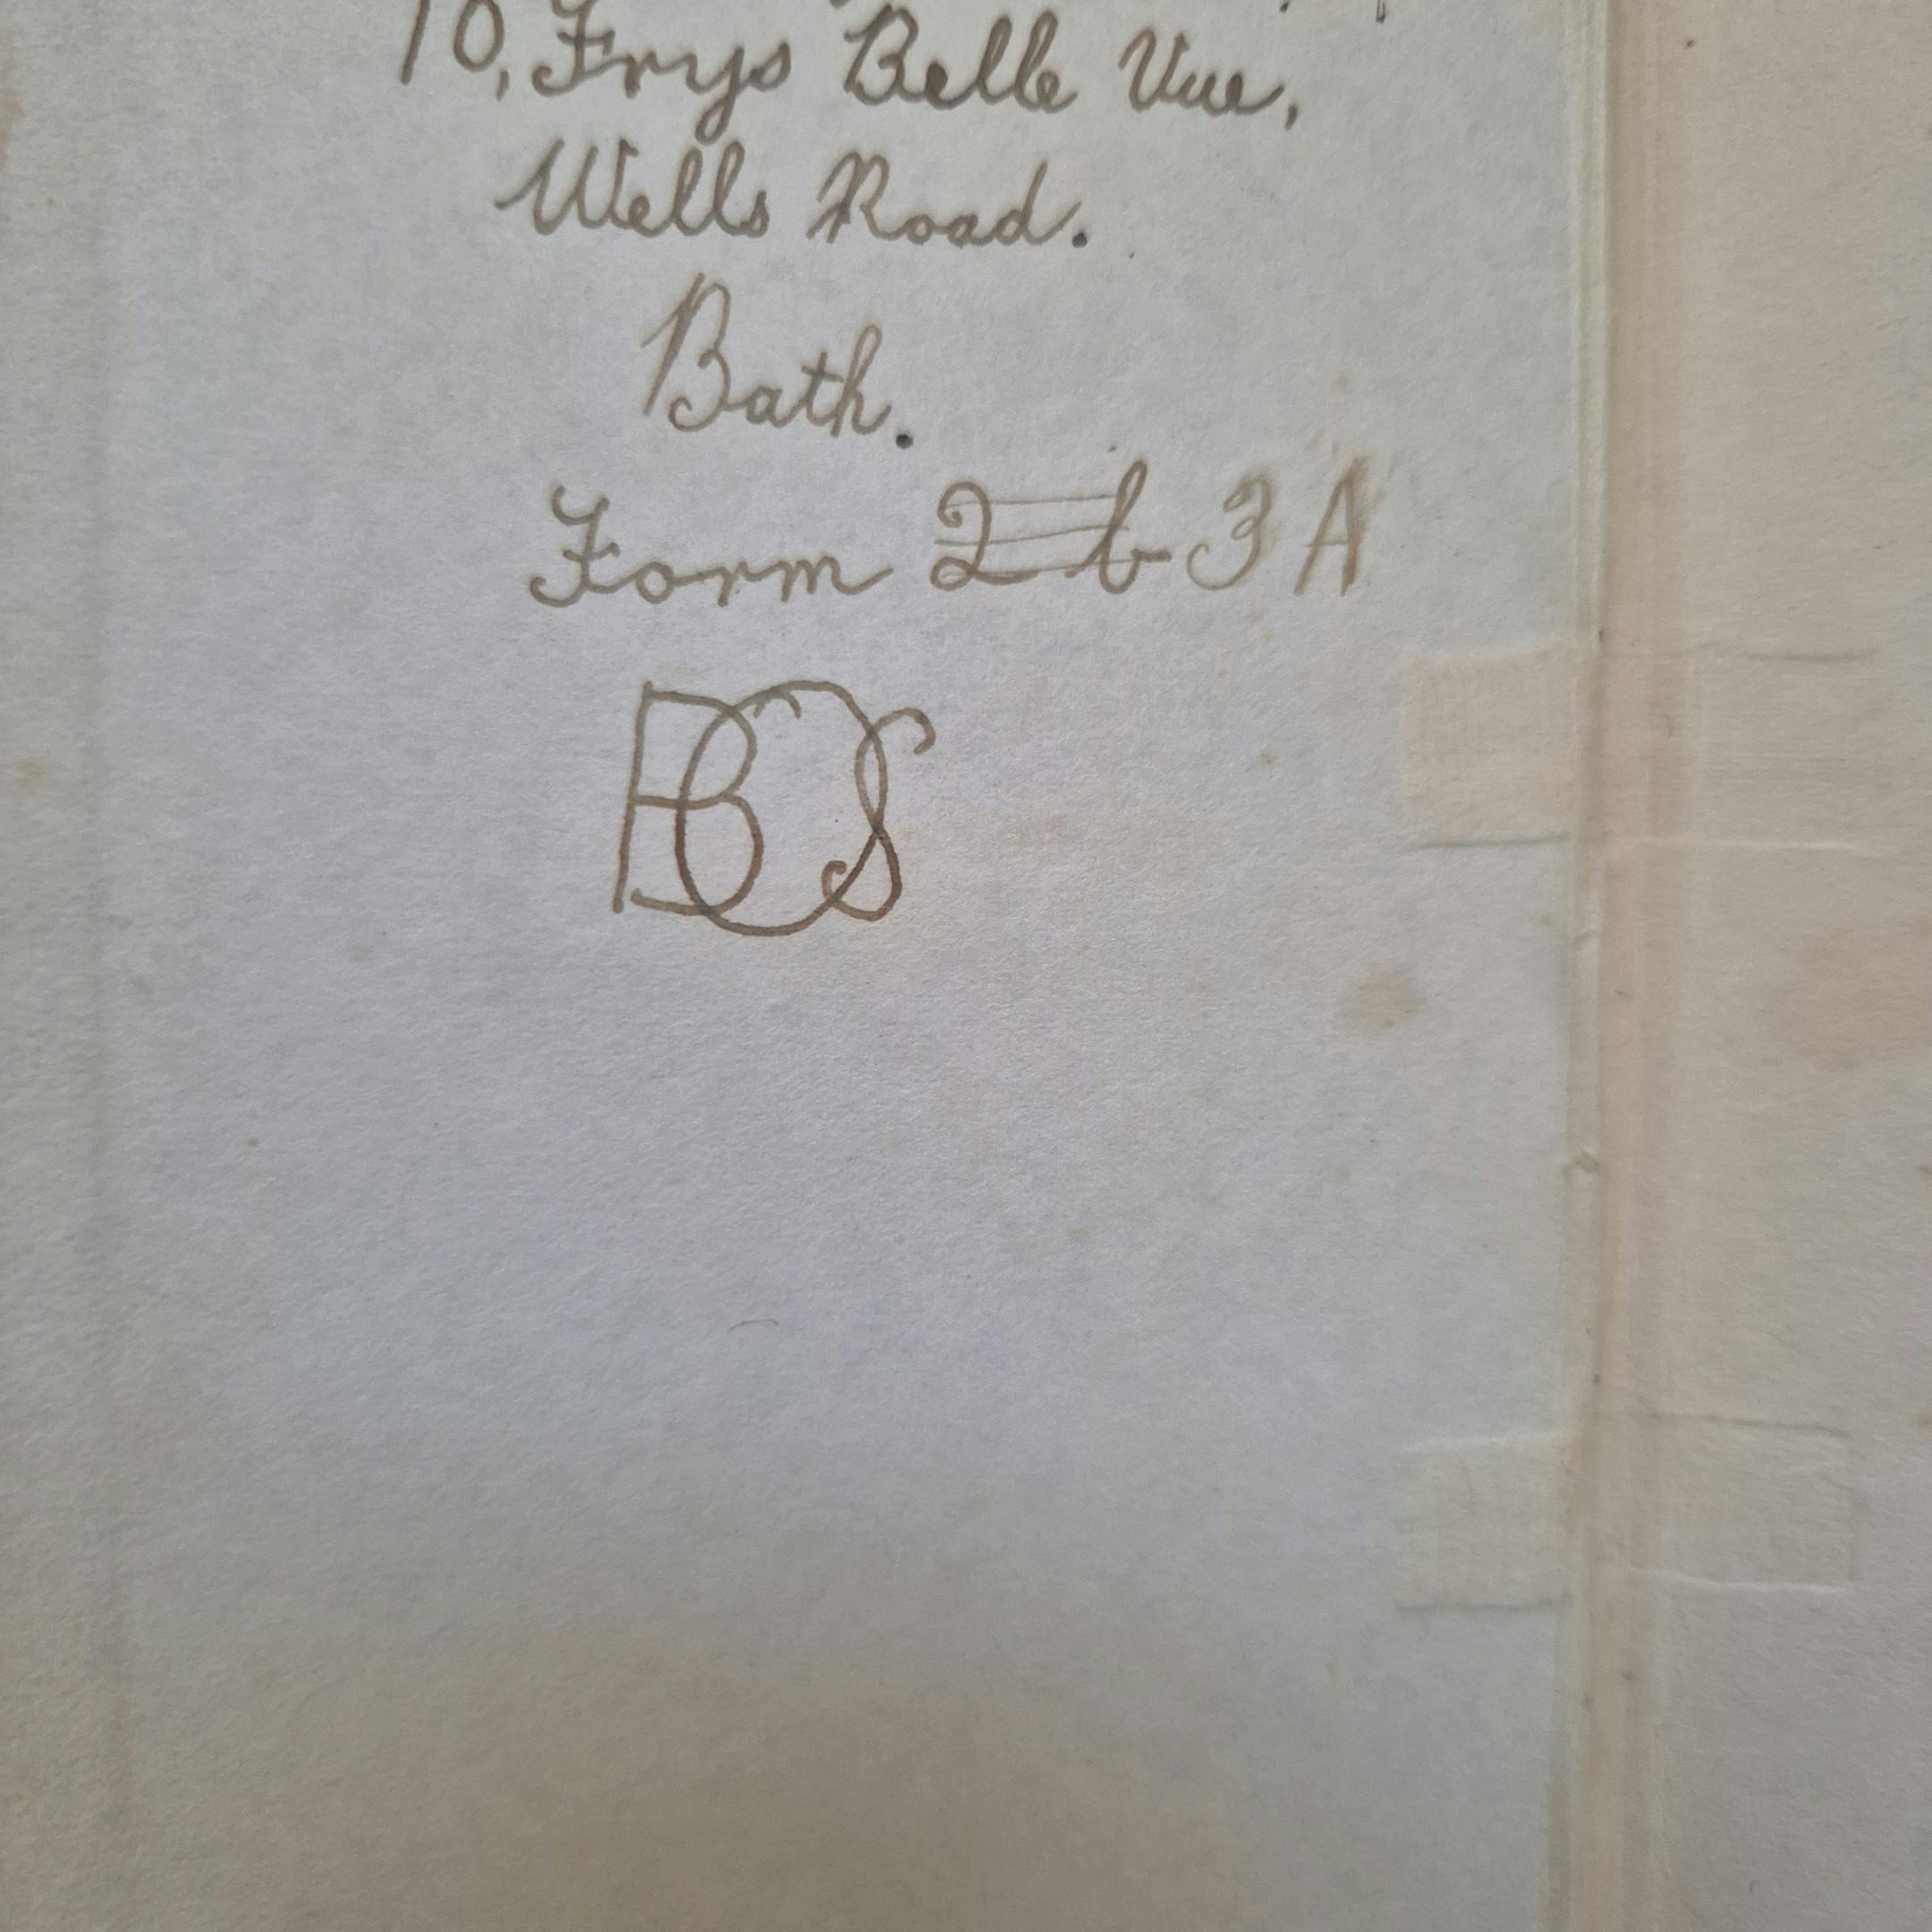 10, Frys Belle Vue,
Wells Road.
Bath.
Form 2 b 3 A
BOS